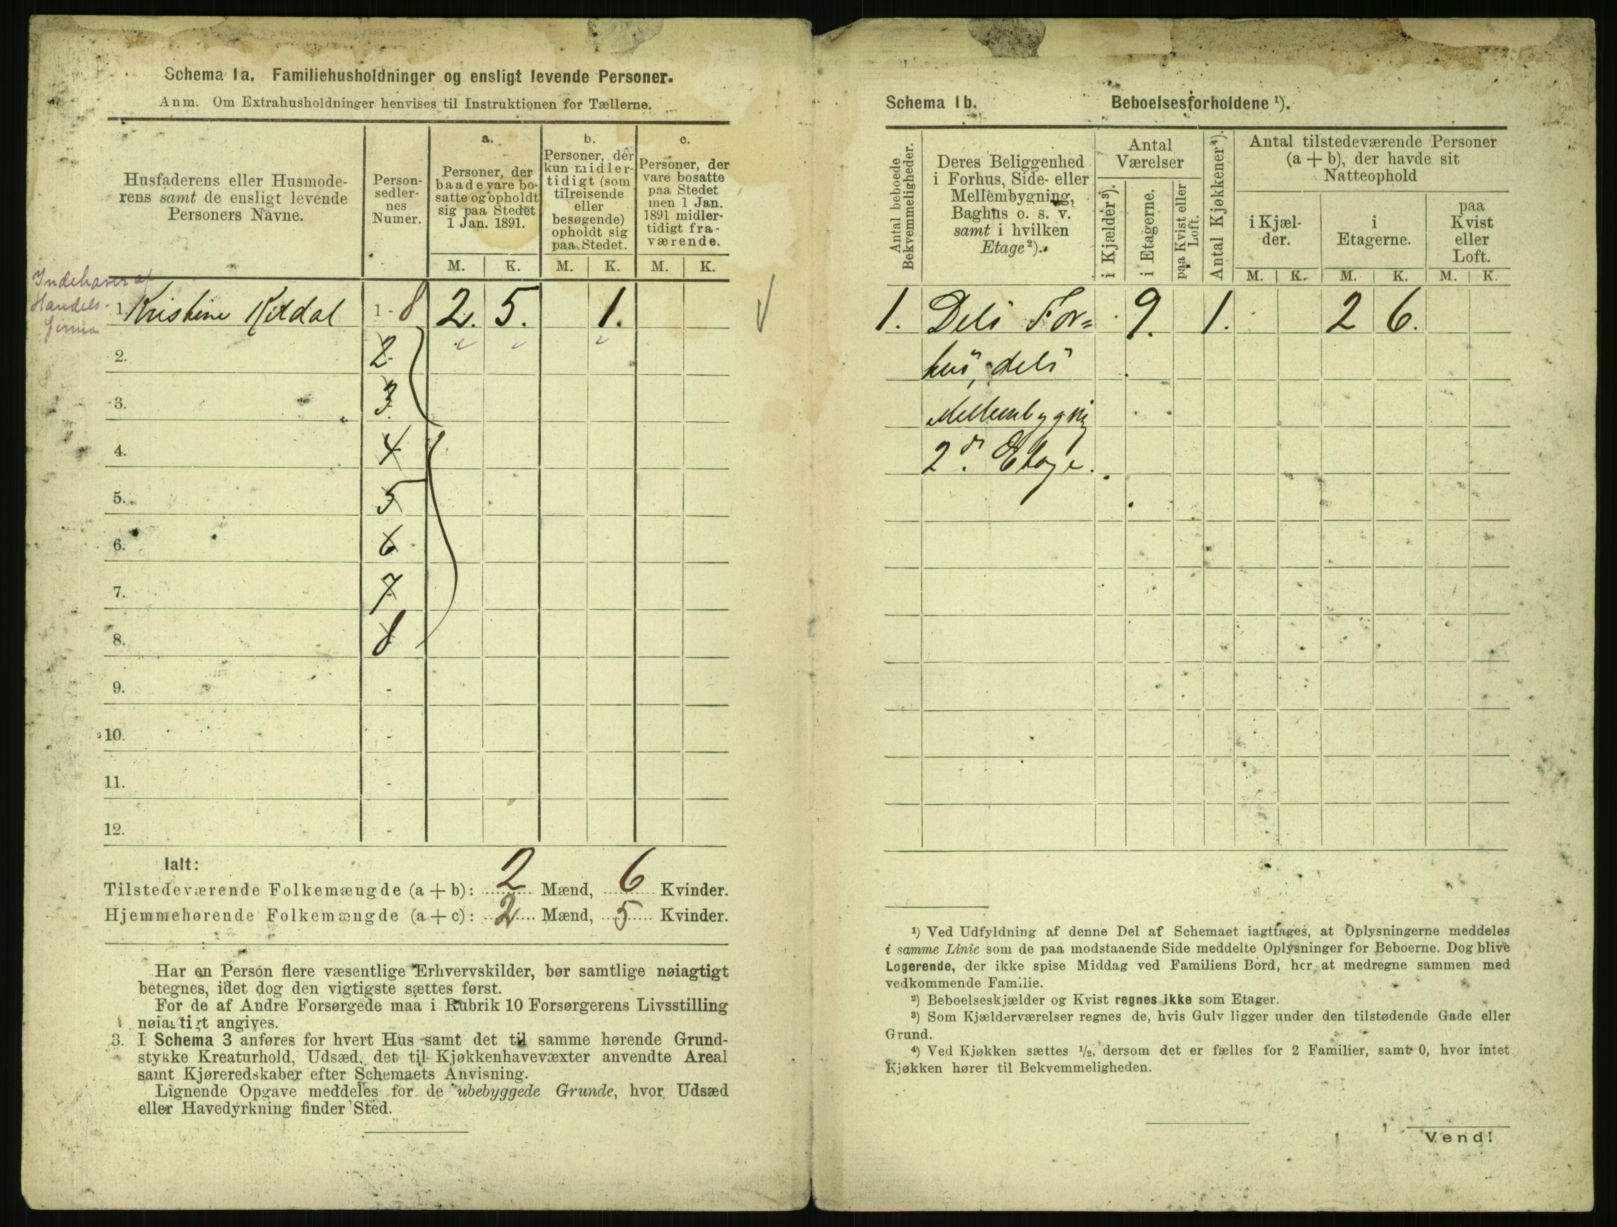 Schema 1a. Familiehusholdninger og ensligt levende Personer.
Anm. Om Extrahusholdninger henvises til Instruktionen for Tællerne.
Husfaderens eller Husmode-
rens samt de ensligt levende
Personers Navne.
Person-
sedler-
nes
Numer.
a.
Personer, der
baade vare bo-
satte og opholdt
sig paa Stedet
1 Jan. 1891.
b.
Personer, der
kun midler-
tidigt (som
tilreisende
eller
besøgende)
opholdt sig
paa Stedet.
c.
Personer, der
vare bosatte
paa Stedet
men 1 Jan.
1891 midler-
tidigt fra-
værende.
M. K. M. K. M. K.
Indehaver af
Handels-
1. Kristine 1-8 2. 5. 1.
2. 2
3. 3
4. 4
5. 5
6. 6
7. 7
8. 8
9.
10.
11.
12.
Ialt:
Tilstedeværende Folkemængde (a + b): 2 Mænd, 6 Kvinder.
Hjemmehørende Folkemængde (a + c): 2 Mænd, 5 Kvinder.
Har en Person flere væsentlige Erhvervskilder, bør samtlige nøiagtigt
betegnes, idet dog den vigtigste sættes først.
For de af Andre Forsørgede maa i Rubrik 10 Forsørgerens Livsstilling
nøiagtigt angives.
3. I Schema 3 anføres for hvert Hus samt det til samme hørende Grund-
stykke Kreaturhold, Udsæd, det til Kjøkkenhavevæxter anvendte Areal
samt Kjøreredskaber efter Schemaets Anvisning.
Lignende Opgave meddeles for de ubebyggede Grunde, hvor Udsæd
eller Havedyrkning finder Sted.
Schema 1b. Beboelsesforholdene ¹).
Antal beboede
Bekvemmeligheder.
Deres Beliggenhed
i Forhus, Side- eller
Mellembygning,
Baghus o. s. v.
samt i hvilken
Etage ²).
Antal
Værelser
i Kjælder ³).
i Etagerne.
paa Kvist eller
Loft.
Antal Kjøkkener ⁴).
Antal tilstedeværende Personer
(a + b), der havde sit
Natteophold
i Kjæl-
der.
i
Etagerne.
paa
Kvist
eller
Loft.
M. K. M. K. M. K.
1. Dels For= 9. 1. 2 6.
hus, dels
Mellembygnig
2den Etage.
¹) Ved Udfyldning af denne Del af Schemaet iagttages, at Oplysningerne meddeles
i samme Linie som de paa modstaaende Side meddelte Oplysninger for Beboerne. Dog blive
Logerende, der ikke spise Middag ved Familiens Bord, her at medregne sammen med
vedkommende Familie.
²) Beboelseskjælder og Kvist regnes ikke som Etager.
³) Som Kjælderværelser regnes de, hvis Gulv ligger under den tilstødende Gade eller
Grund.
⁴) Ved Kjøkken sættes ½, dersom det er fælles for 2 Familier, samt 0, hvor intet
Kjøkken hører til Bekvemmeligheden.
Vend!